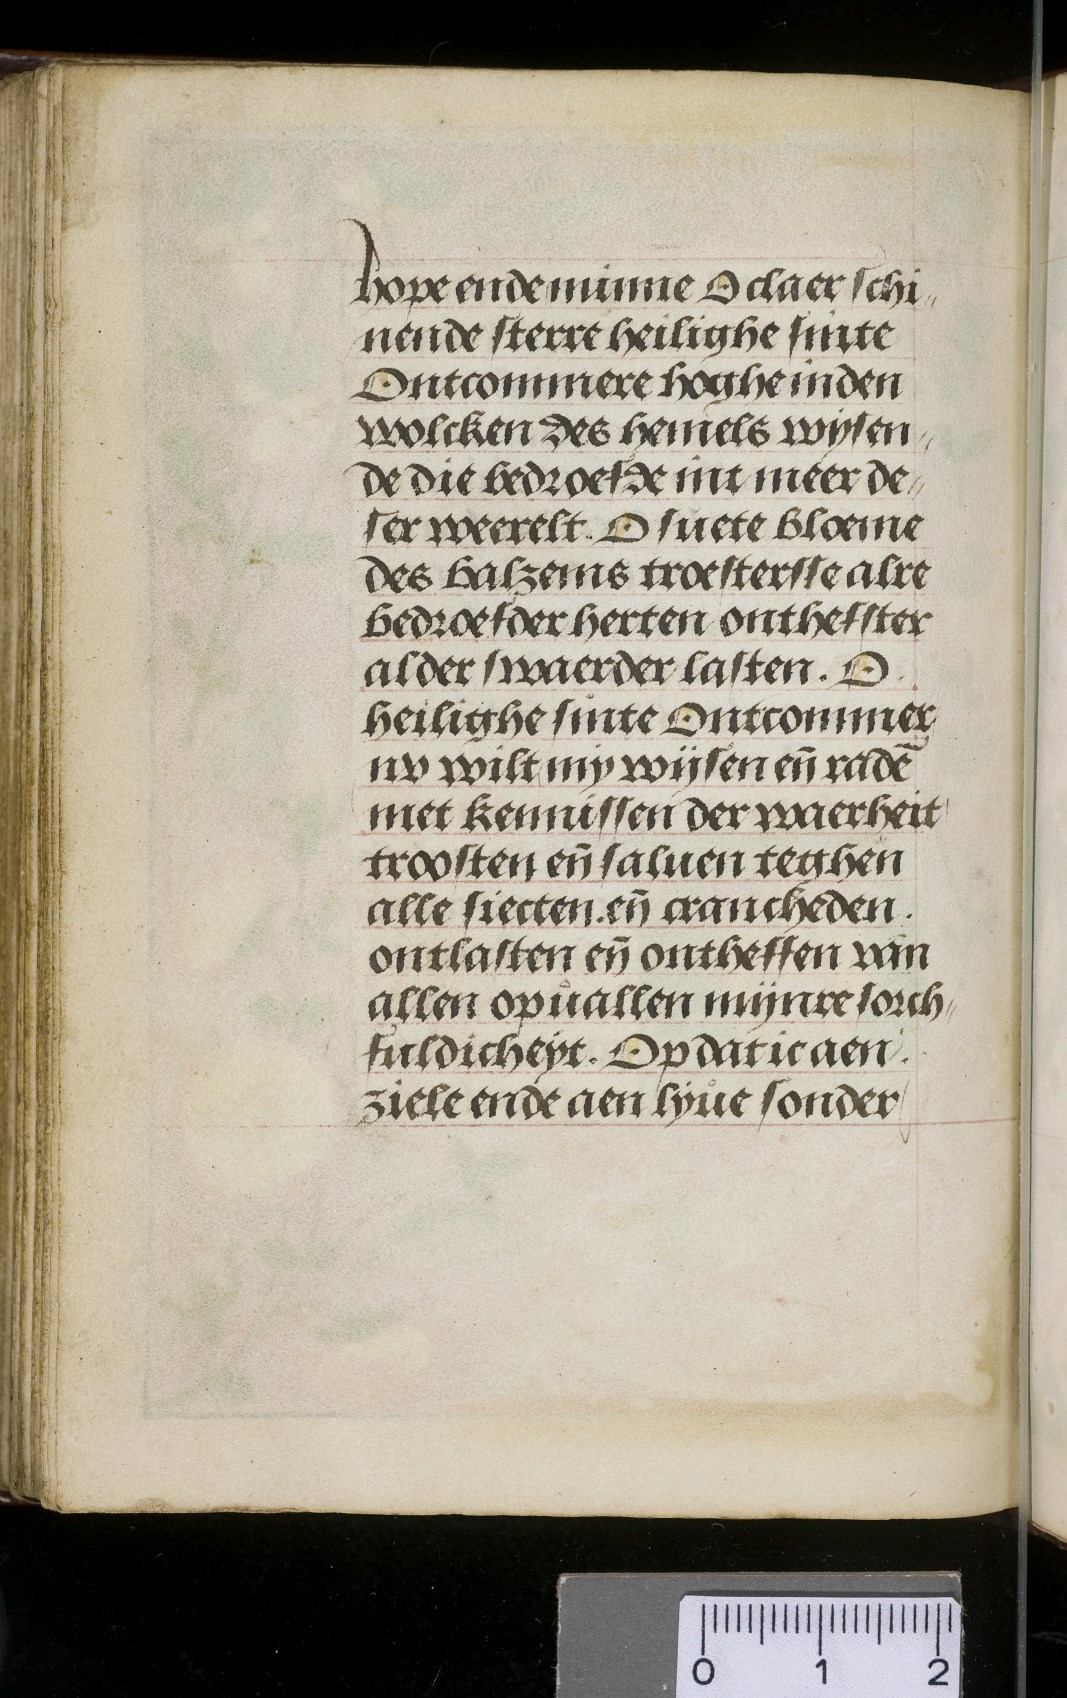 hope ende minne O claer schi„
nende sterre heilighe sinte
Ontcommere hoghe inden
wolcken des hemels wijsen„
de die bedroefde int meer de„
ser weerelt. O suete bloeme
des balzems troestersse alre
bedroefder herten ontheffster
alder swaerder lasten. O
heilighe sinte Ontcommer
nv wilt mij wijsen en̄ radē
met kennissen der waerheit
troosten en̄ saluen teghen
alle siecten. en̄ cranckeden.
ontlasten en̄ ontheffen van
allen opuallen mijnre sorch„
fuldicheyt. Op dat ic aen
ziele ende aen lyue sonder
0 1 2